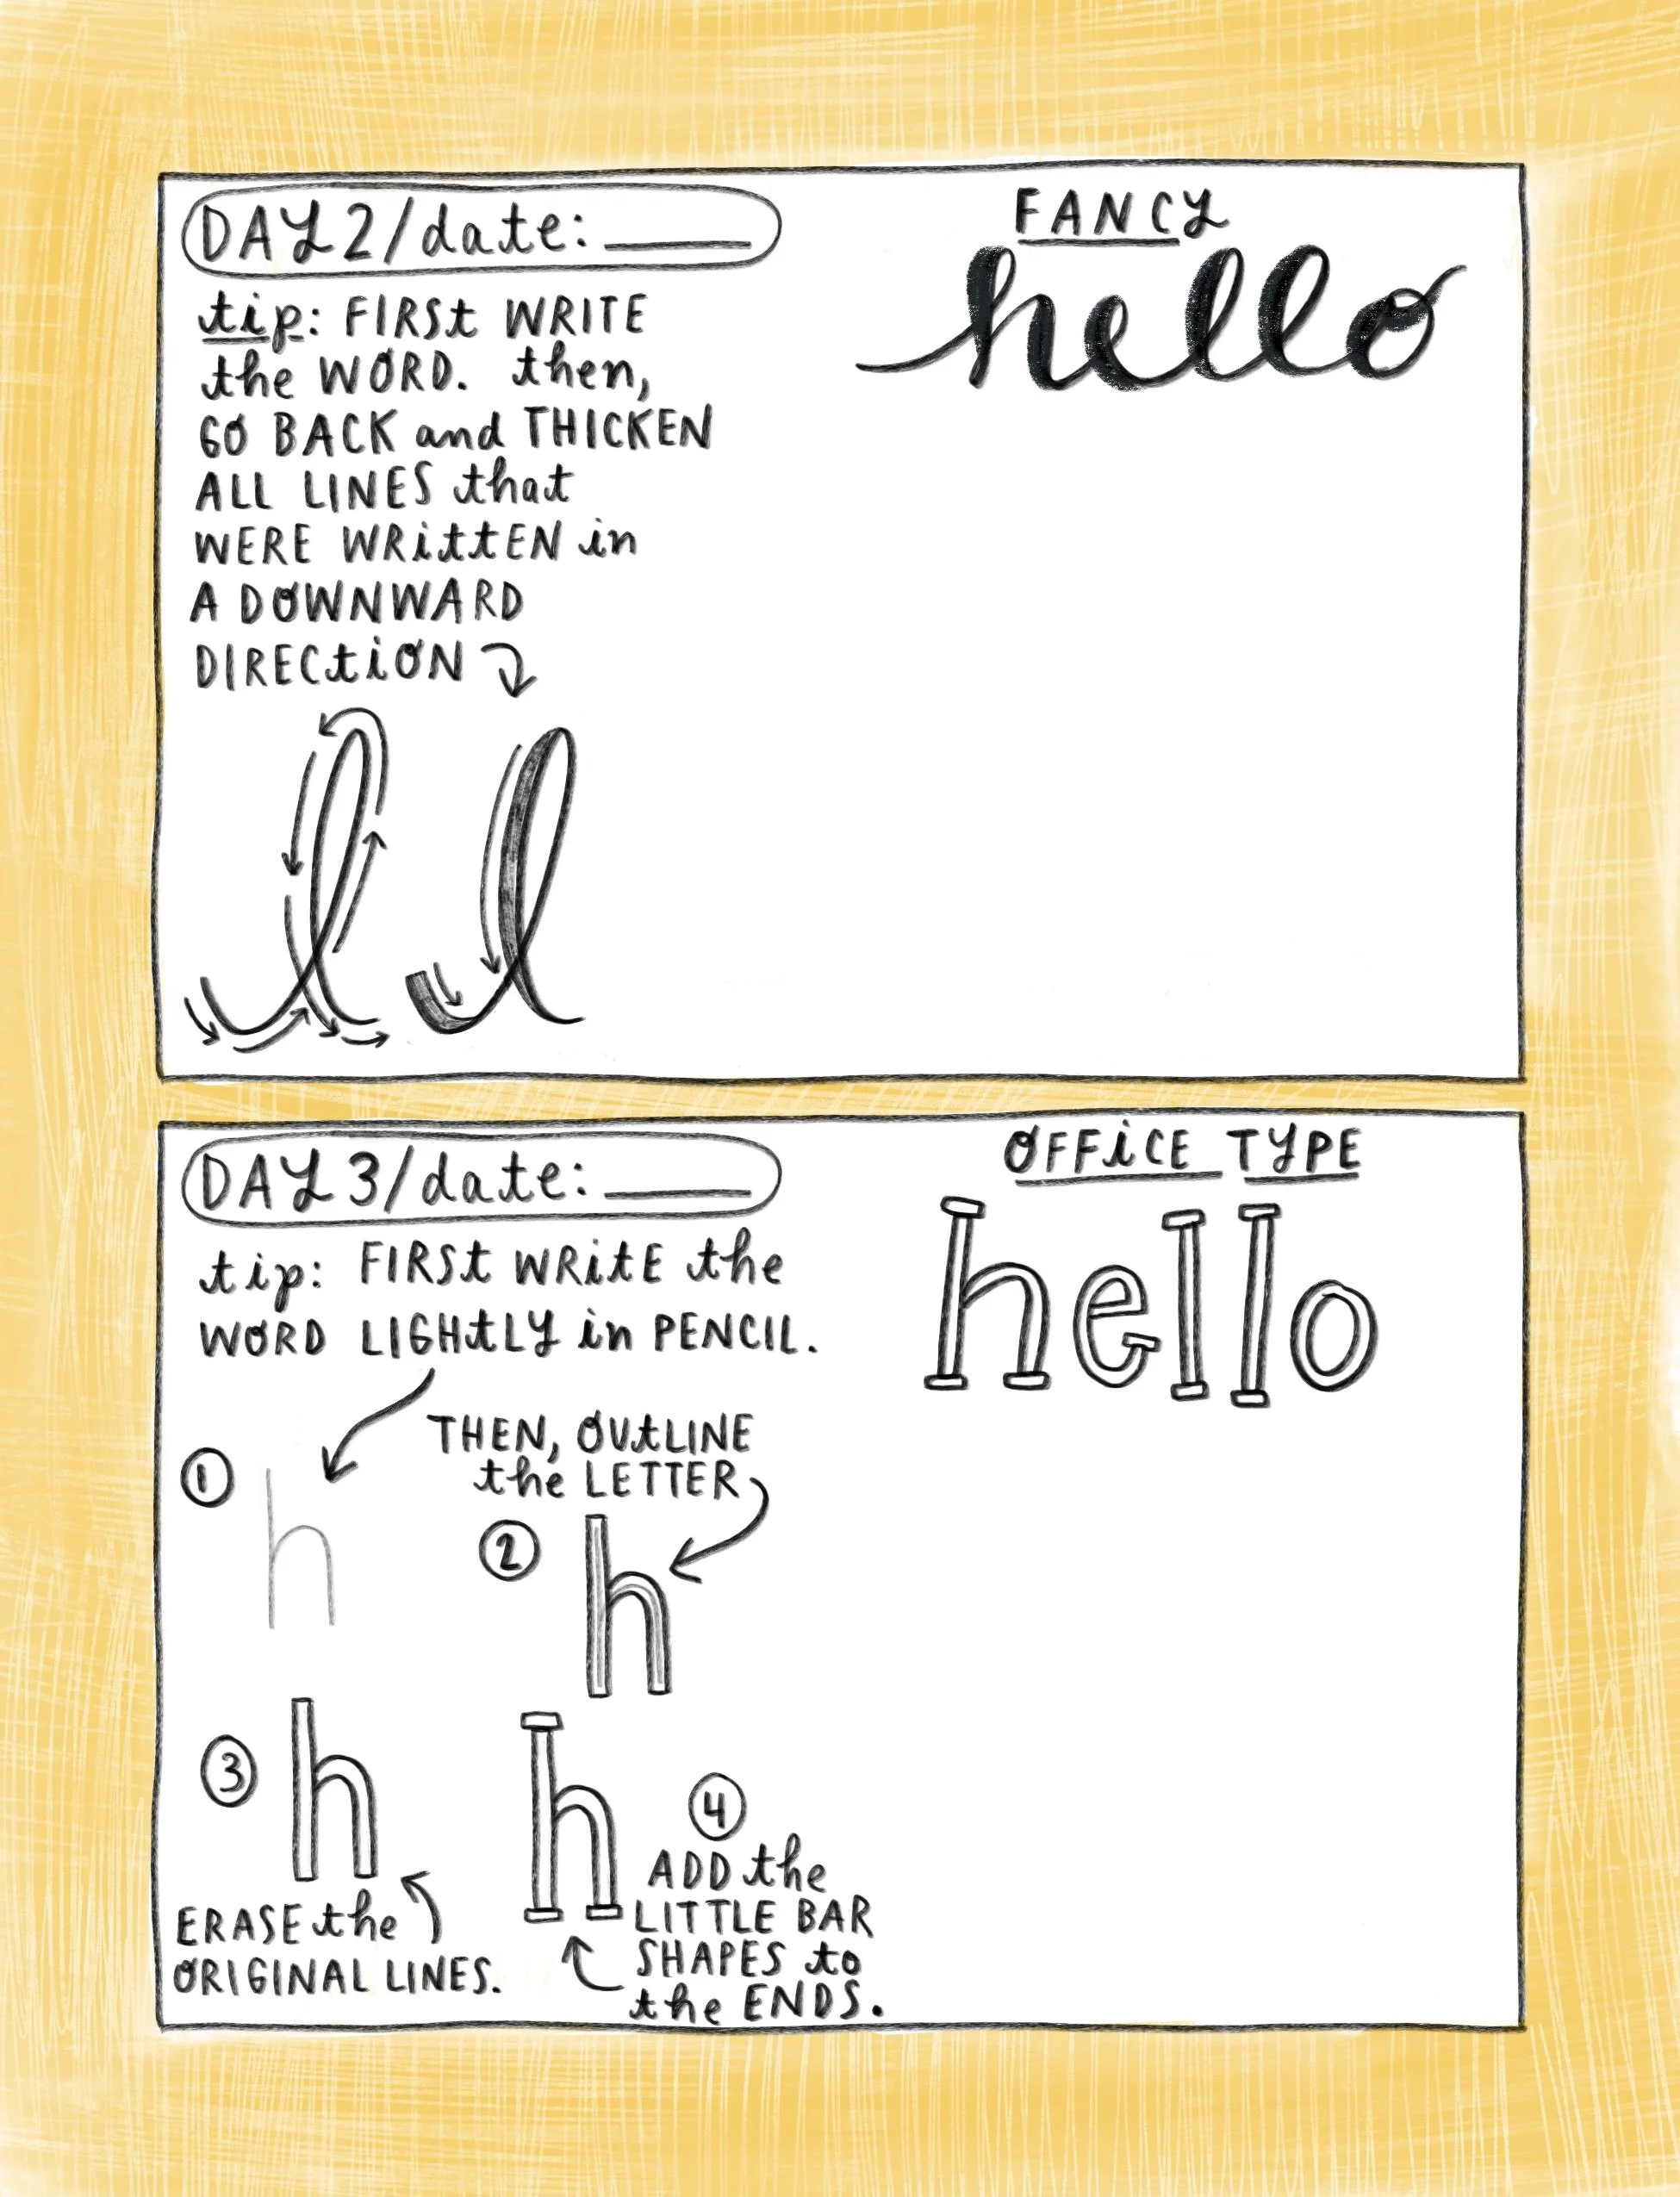 DAY 2/date: ______
FANCY
hello
tip: FIRSt WRITE
the WORD. then,
GO BACK and THICKEN
ALL LINES that
WERE WRittEN in
A DOWNWARD
DIRECtiON
l l
DAY 3/date: ______
OFFiCE TYPE
hello
tip: FIRSt WRitE the
WORD LIGHtLY in PENCIL.
THEN, OUtLINE
the LETTER
1 h
2 h
3 h
ERASE the
ORIGINAL LINES.
h
4
ADD the
LITTLE BAR
SHAPES to
the ENDS.